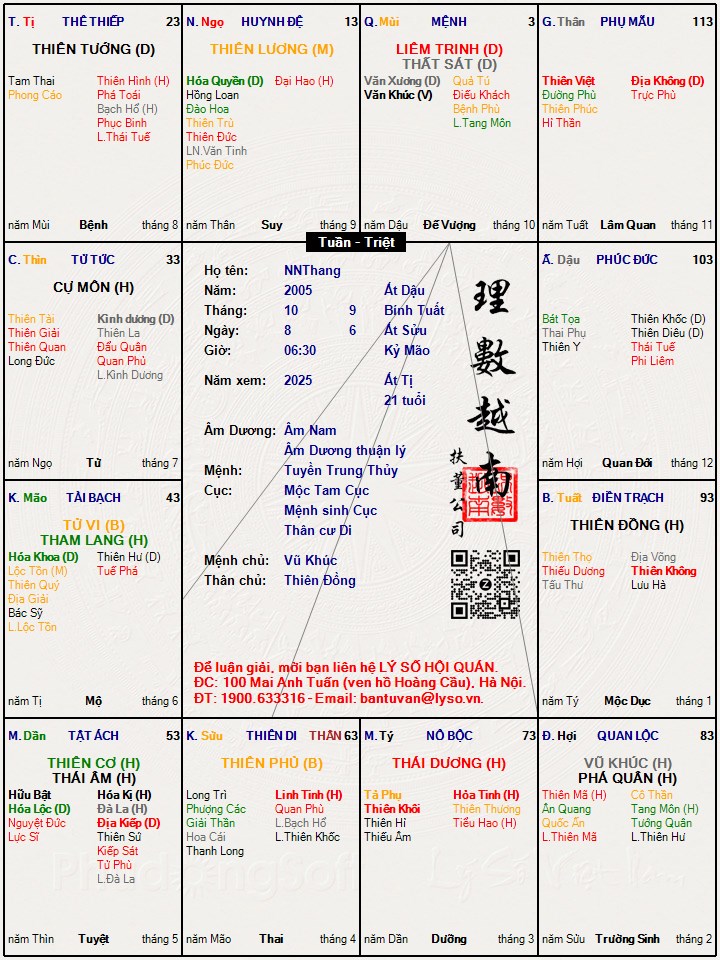 T. Tị THÊ THIẾP 23
THIÊN TƯỚNG (D)
Tam Thai
Phong Cáo
Thiên Hình (H)
Phá Toái
Bạch Hổ (H)
Phục Binh
L.Thái Tuế
năm Mùi Bệnh tháng 8
N. Ngọ HUYNH ĐỆ 13
THIÊN LƯƠNG (M)
Hóa Quyền (D)
Hồng Loan
Đào Hoa
Thiên Trù
Thiên Đức
LN.Văn Tinh
Phúc Đức
Đại Hao (H)
năm Thân Suy tháng 9
Q. Mùi MỆNH 3
LIÊM TRINH (D)
THẤT SÁT (D)
Văn Xương (D)
Văn Khúc (V)
Quả Tú
Điếu Khách
Bệnh Phù
L.Tang Môn
năm Dậu Đế Vượng tháng 10
G. Thân PHỤ MẪU 113
Thiên Việt
Đường Phù
Thiên Phúc
Hỉ Thần
Địa Không (D)
Trực Phù
năm Tuất Lâm Quan tháng 11
Tuần - Triệt
C. Thìn TỬ TỨC 33
CỰ MÔN (H)
Thiên Tài
Thiên Giải
Thiên Quan
Long Đức
Kình dương (D)
Thiên La
Đẩu Quân
Quan Phủ
L.Kình Dương
năm Ngọ Tử tháng 7
Họ tên: NNThang
Năm: 2005 Ất Dậu
Tháng: 10 9 Bính Tuất
Ngày: 8 6 Ất Sửu
Giờ: 06:30 Kỷ Mão
Năm xem: 2025 Ất Tị
21 tuổi
Âm Dương: Âm Nam
Âm Dương thuận lý
Mệnh: Tuyền Trung Thủy
Cục: Mộc Tam Cục
Mệnh sinh Cục
Thân cư Di
Mệnh chủ: Vũ Khúc
Thân chủ: Thiên Đồng
理數越南
扶董公司
Z
Để luận giải, mời bạn liên hệ LÝ SỐ HỘI QUÁN.
ĐC: 100 Mai Anh Tuấn (ven hồ Hoàng Cầu), Hà Nội.
ĐT: 1900.633316 - Email: bantuvan@lyso.vn.
Ấ. Dậu PHÚC ĐỨC 103
Bát Tọa
Thai Phụ
Thiên Y
Thiên Khốc (D)
Thiên Diêu (D)
Thái Tuế
Phi Liêm
năm Hợi Quan Đới tháng 12
K. Mão TÀI BẠCH 43
TỬ VI (B)
THAM LANG (H)
Hóa Khoa (D)
Lộc Tồn (M)
Thiên Quý
Địa Giải
Bác Sỹ
L.Lộc Tồn
Thiên Hư (D)
Tuế Phá
năm Tị Mộ tháng 6
B. Tuất ĐIỀN TRẠCH 93
THIÊN ĐỒNG (H)
Thiên Thọ
Thiếu Dương
Tấu Thư
Địa Võng
Thiên Không
Lưu Hà
năm Tý Mộc Dục tháng 1
M. Dần TẬT ÁCH 53
THIÊN CƠ (H)
THÁI ÂM (H)
Hữu Bật
Hóa Lộc (D)
Nguyệt Đức
Lực Sĩ
Hóa Kị (H)
Đà La (H)
Địa Kiếp (D)
Thiên Sứ
Kiếp Sát
Tử Phù
L.Đà La
năm Thìn Tuyệt tháng 5
K. Sửu THIÊN DI THÂN 63
THIÊN PHỦ (B)
Long Trì
Phượng Các
Giải Thần
Hoa Cái
Thanh Long
Linh Tinh (H)
Quan Phù
L.Bạch Hổ
L.Thiên Khốc
năm Mão Thai tháng 4
M. Tý NÔ BỘC 73
THÁI DƯƠNG (H)
Tả Phụ
Thiên Khôi
Thiên Hỉ
Thiếu Âm
Hỏa Tinh (H)
Thiên Thương
Tiểu Hao (H)
năm Dần Dưỡng tháng 3
Đ. Hợi QUAN LỘC 83
VŨ KHÚC (H)
PHÁ QUÂN (H)
Thiên Mã (H)
Ân Quang
Quốc Ấn
L.Thiên Mã
Cô Thần
Tang Môn (H)
Tướng Quân
L.Thiên Hư
năm Sửu Trường Sinh tháng 2